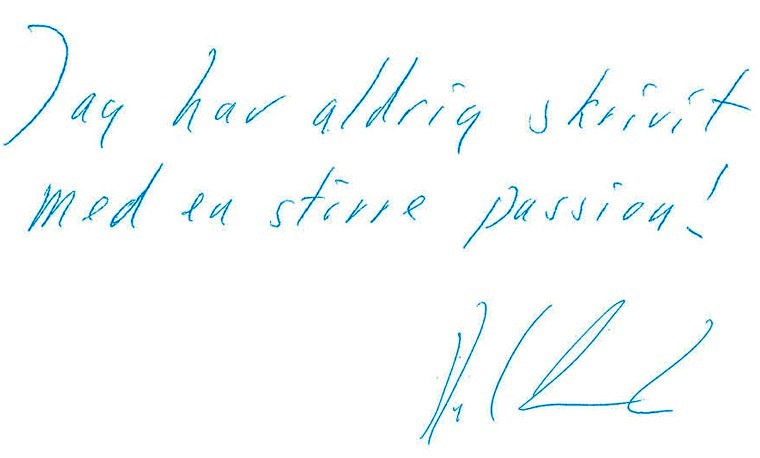 Jag har aldrig skrivit
med en större passion!